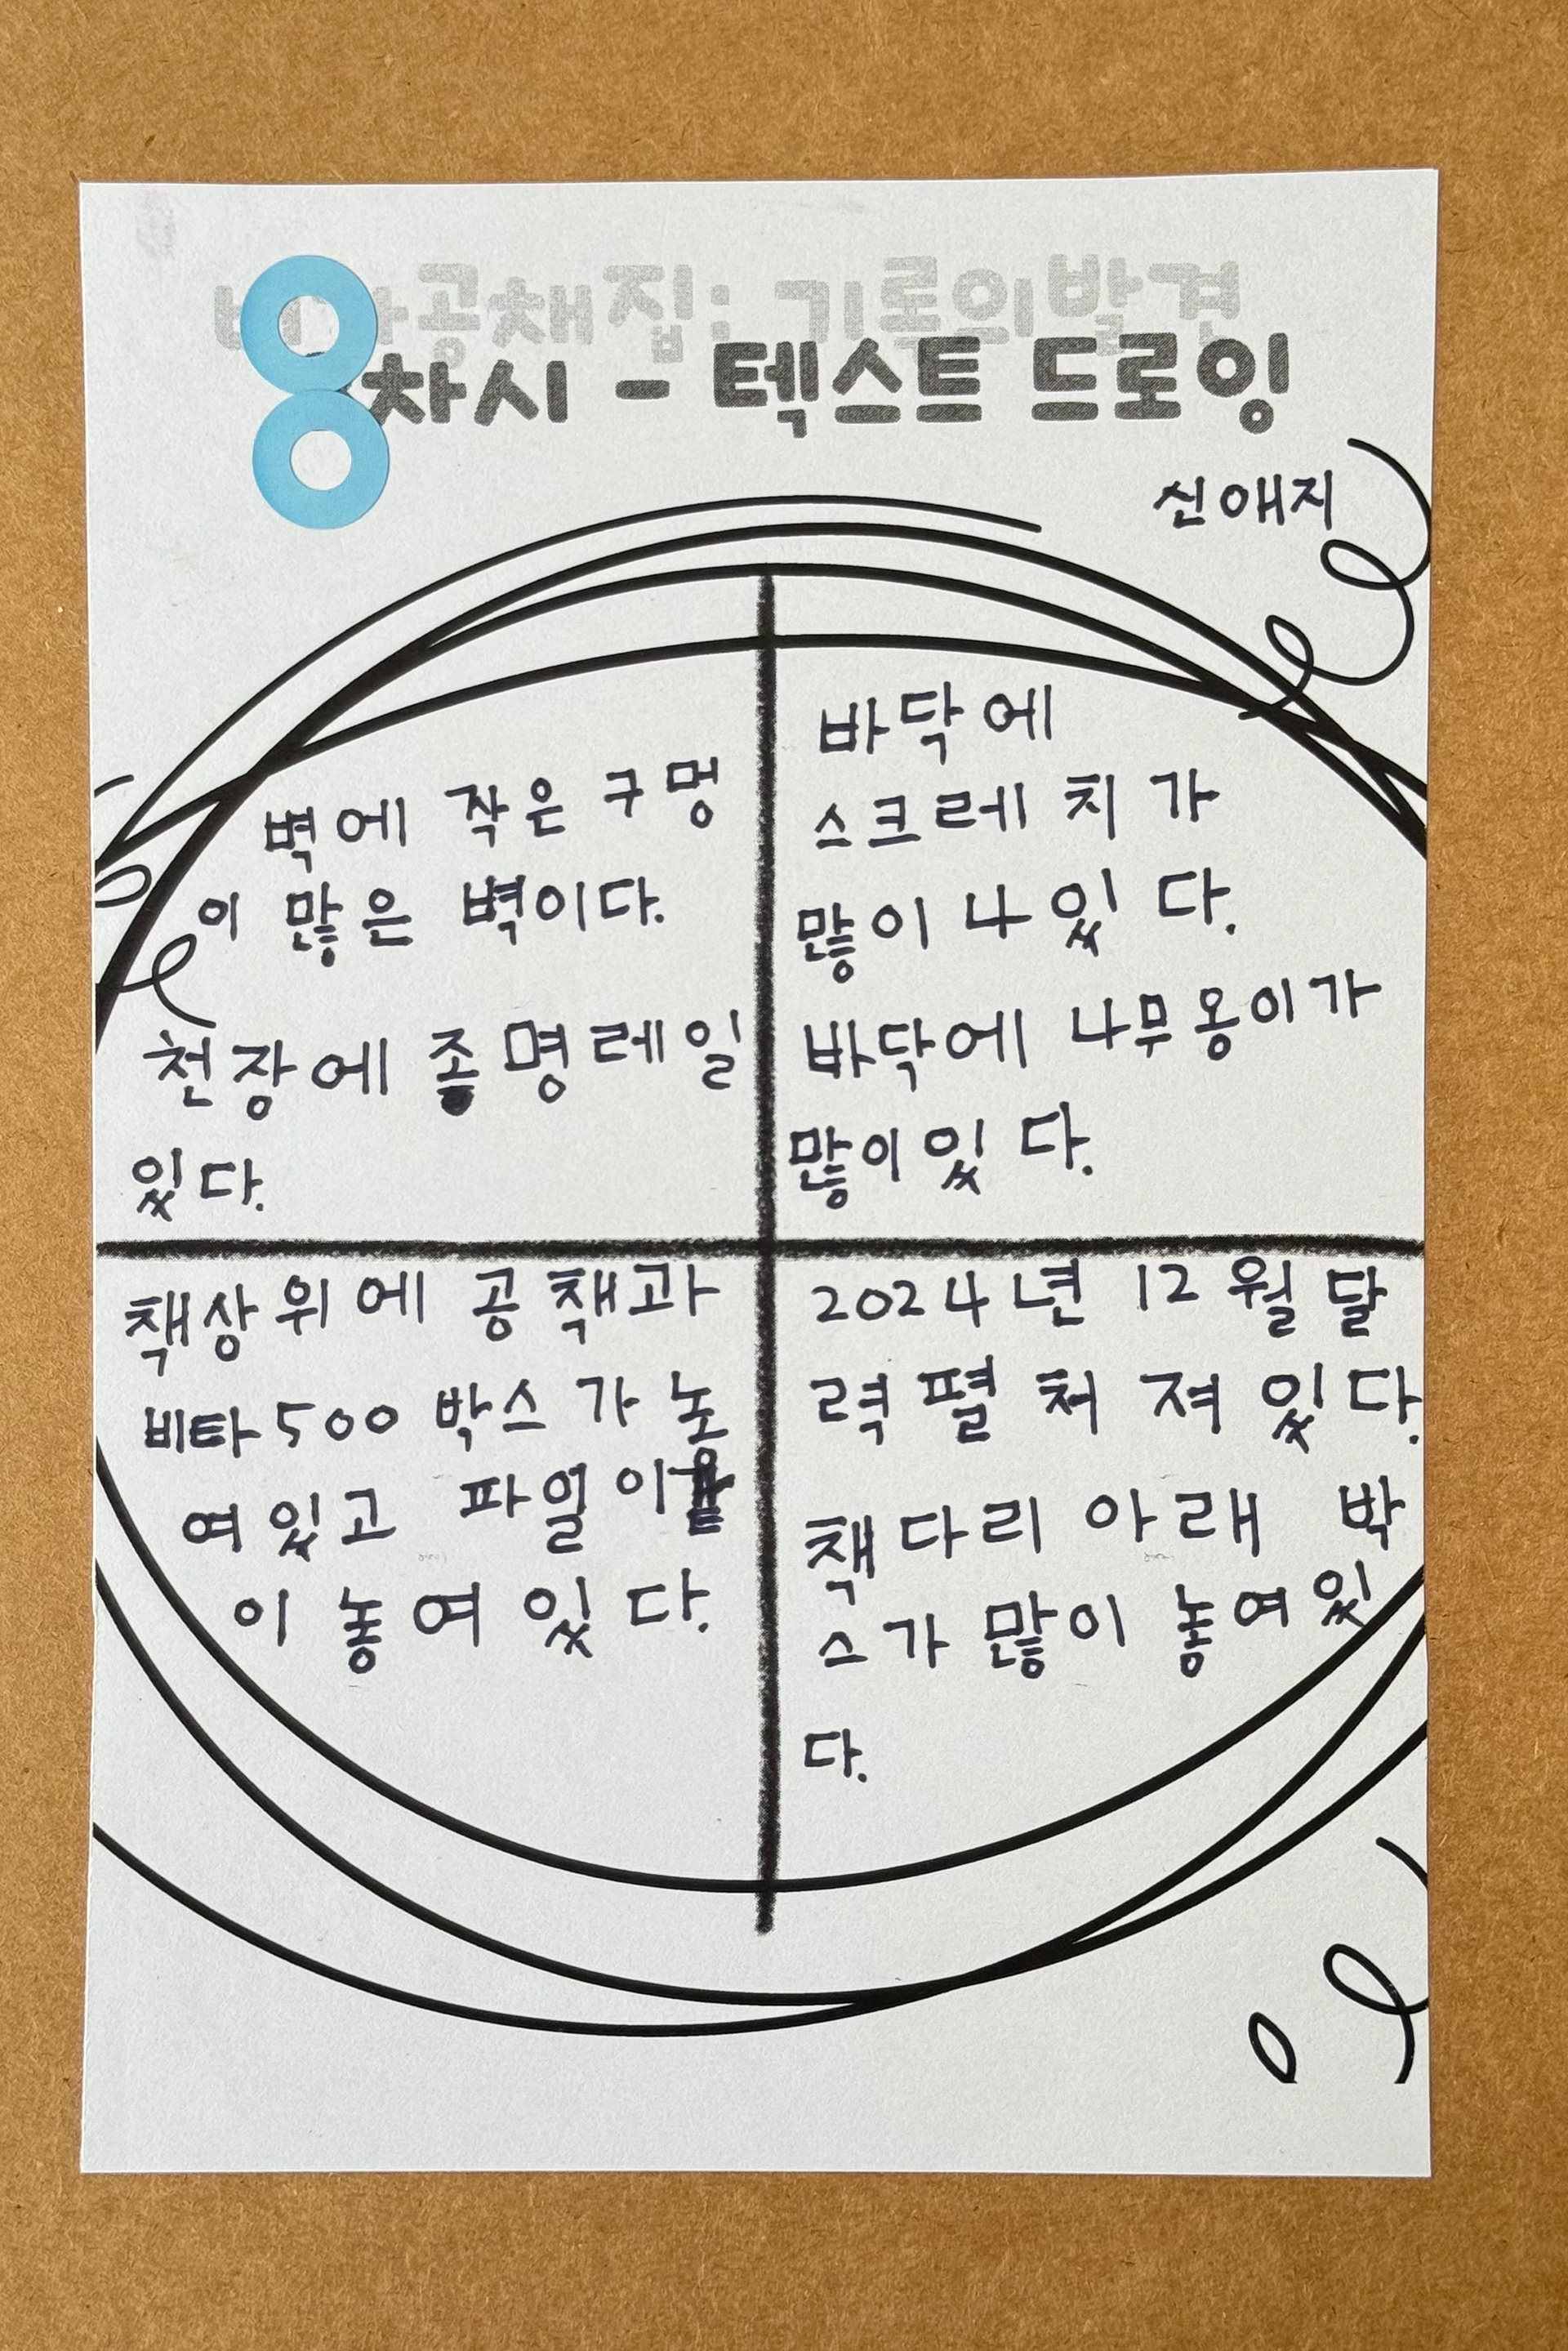 공채집: 기록의발견
8차시 - 텍스트 드로잉
신애지
벽에 작은 구멍
이 많은 벽이다.
천장에 조명레일
있다.
바닥에
스크레치가
많이 나있다.
바닥에 나무옹이가
많이있다.
책상위에 공책과
비타500 박스가 놓
여있고 파일이
이 놓여있다.
2024년 12월달
력 펼쳐져있다.
책다리 아래 박
스가 많이 놓여있
다.